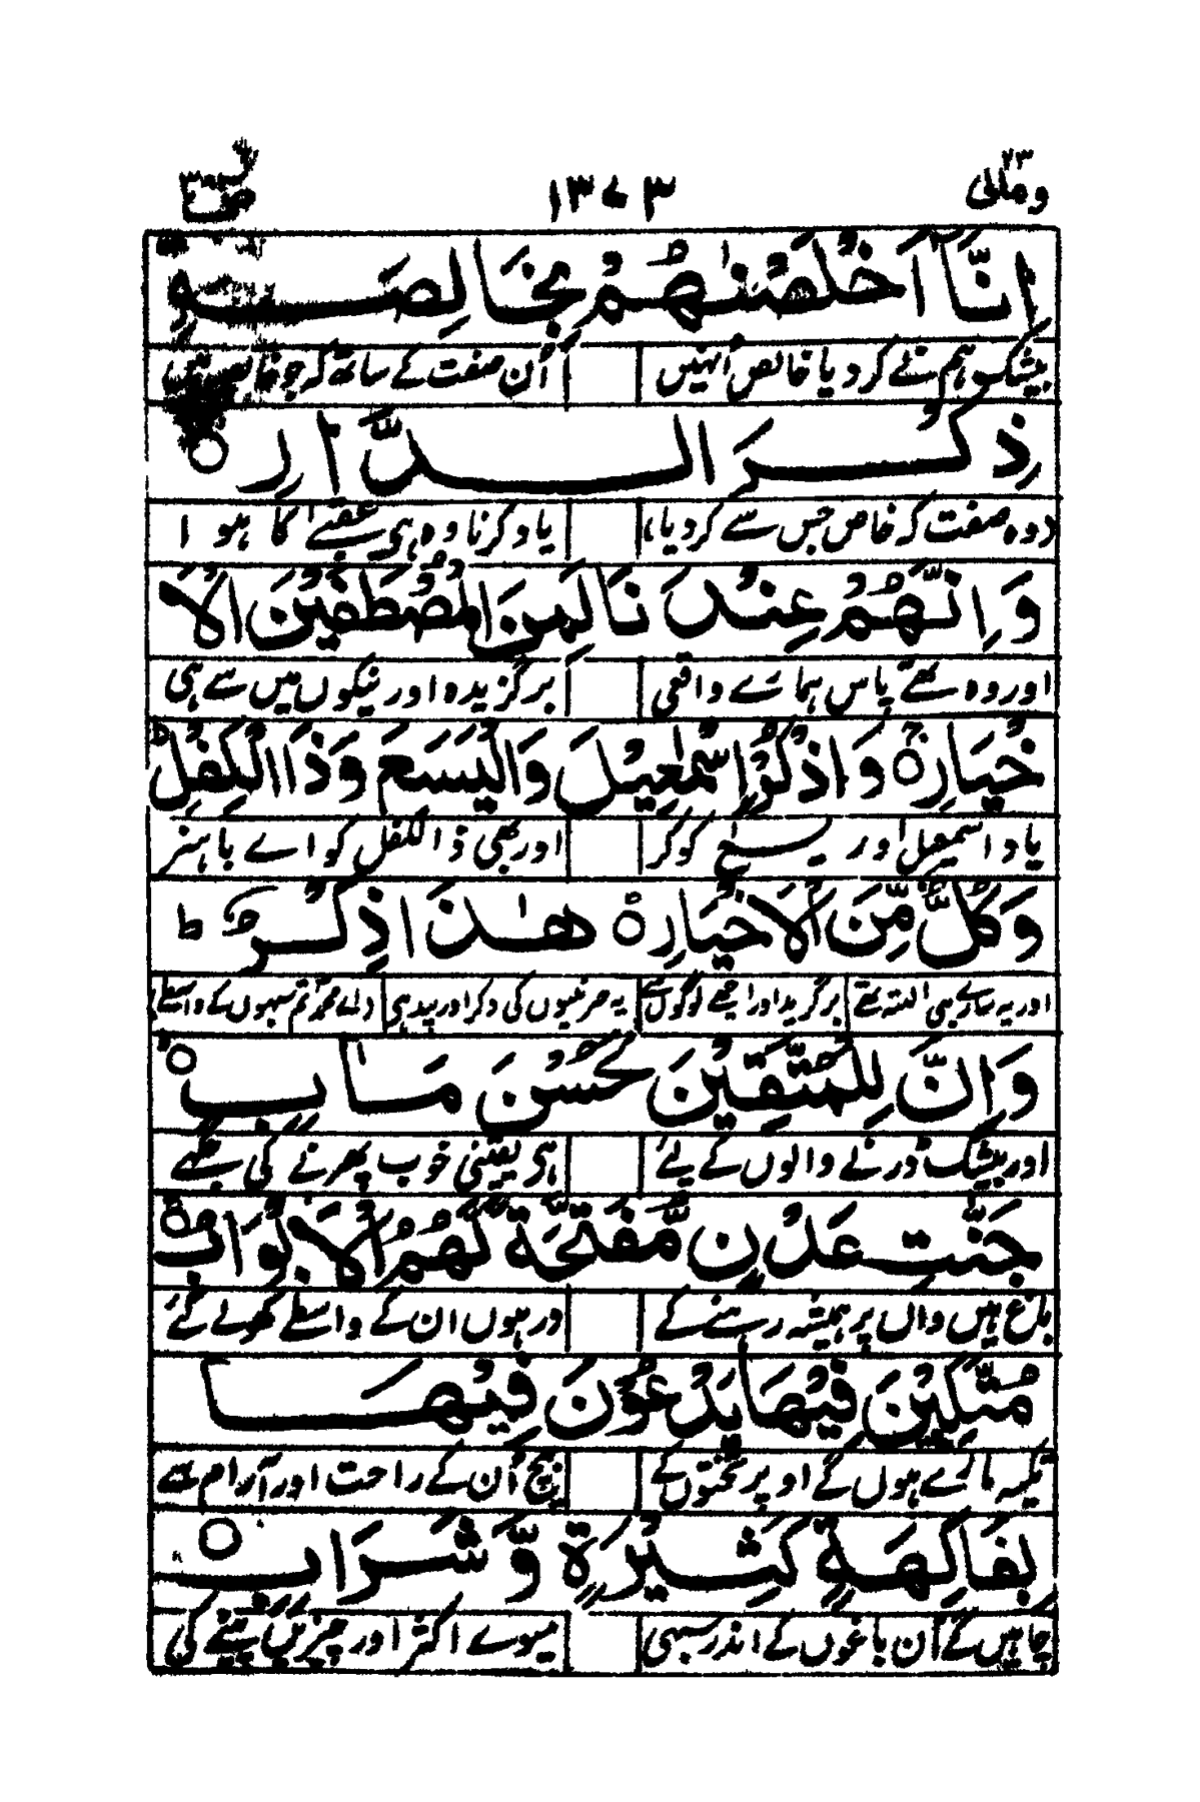 ومالی ۲۳ ۱۳۷۳ صٓ
اِنَّآ اَخْلَصْنٰهُمْ بِخَالِصَةٍ
بیشک ہم نے کر دیا خالص اُنہیں اُن صفت کے ساتھ کہ جو
ذِكْرَى الدَّارِ ۝
وہ صفت کہ خاص جس سے کر دیا، یاد کرنا وہ ہی عقبےٰ کا ہو ا
وَاِنَّهُمْ عِنْدَنَا لَمِنَ الْمُصْطَفَيْنَ الْاَ
اور وہ تھے پاس ہمارے واقعی برگزیدہ اور نیکوں میں سے ہی
خْيَارِ ۝ وَاذْكُرْ اِسْمٰعِيْلَ وَالْيَسَعَ وَذَا الْكِفْلِ ؕ
یاد اسمٰعیل اور یسع کو کر اور بھی ذالکفل کو اے باہنر
وَكُلٌّ مِّنَ الْاَخْيَارِ ۝ هٰذَا ذِكْرٌ ؕ
اور یہ سارے ہی البتہ تھے برگزیدا اور اچھے لوگوں سے یہ خبر نبیوں کی ذکر اور پند ہی
وَاِنَّ لِلْمُتَّقِيْنَ لَحُسْنَ مَاٰبٍ ۝
اور بیشک ڈرنے والوں کے لئے ہی یقینی خوب پھرنے کی جگہ
جَنّٰتِ عَدْنٍ مُّفَتَّحَةً لَّهُمُ الْاَبْوَابُ ۝
باغ ہیں واں پر ہمیشہ رہنے کے در ہوں ان کے واسطے کھولے گئے
مُتَّكِـِٕيْنَ فِيْهَا يَدْعُوْنَ فِيْهَا
تکیہ مارے ہوں گے اوپر تختوں کے بیچ اُن کے راحت اور آرام سے
بِفَاكِهَةٍ كَثِيْرَةٍ وَّشَرَابٍ ۝
چاہیں گے اُن باغوں کے اندر سبہی میوے اکثر اور چیزیں پینے کی